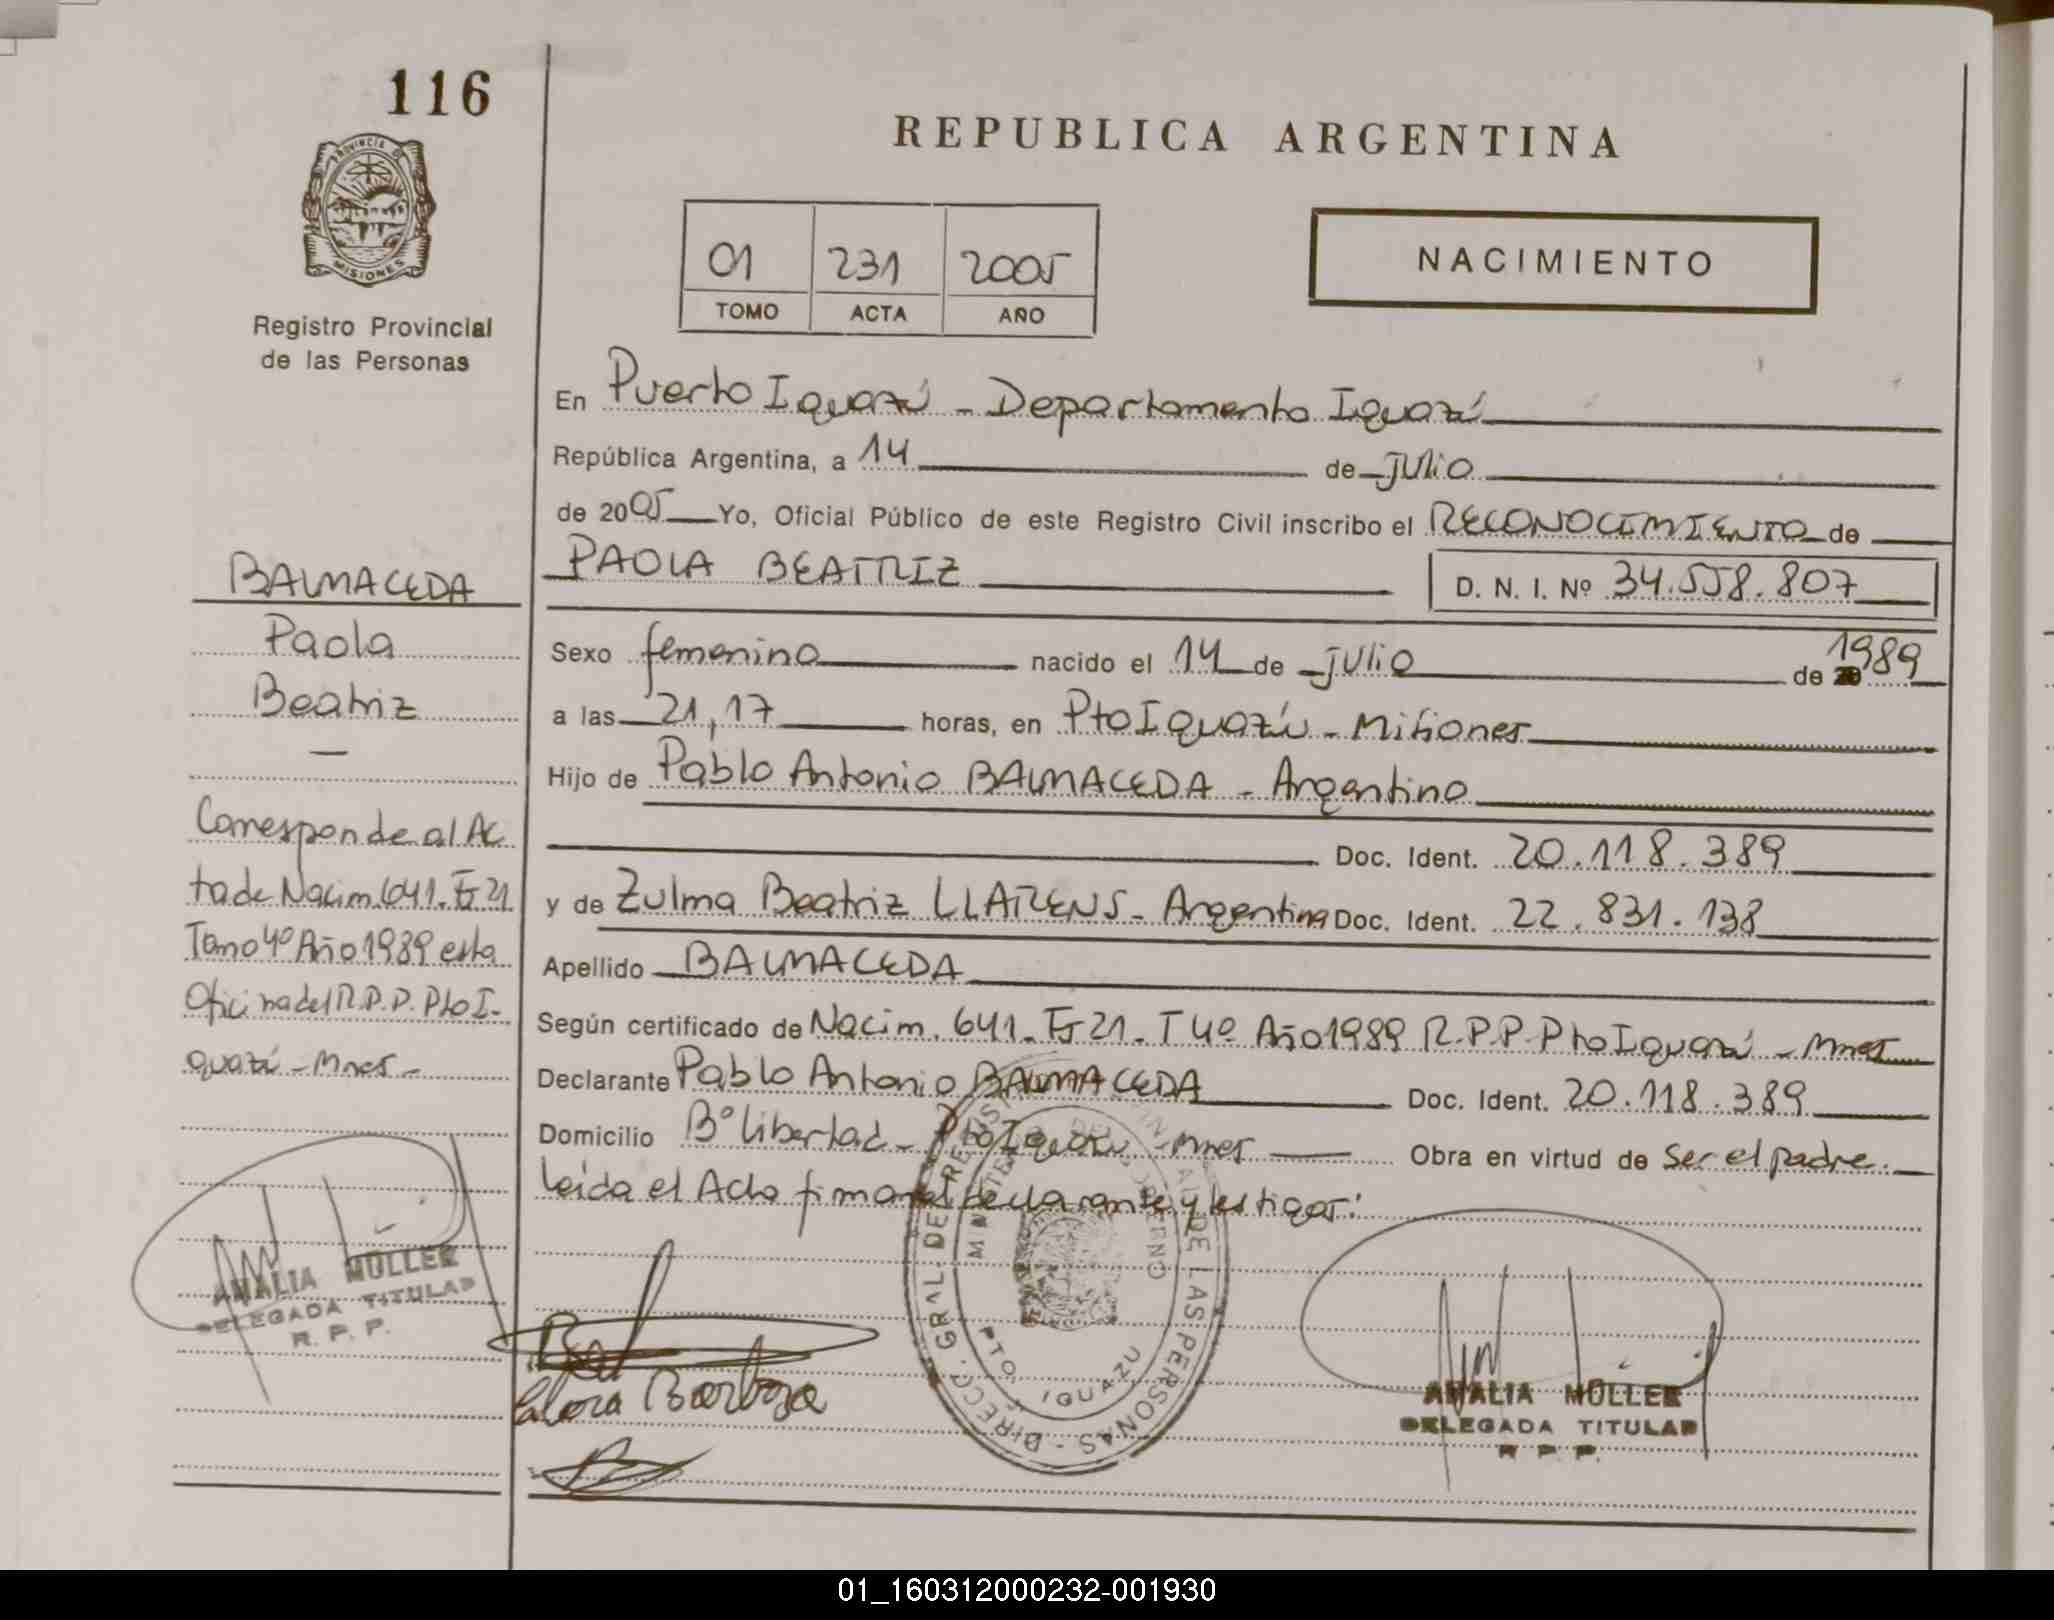 116
PROVINCIA DE
MISIONES
Registro Provincial
de las Personas
REPUBLICA ARGENTINA
01 231 2005
TOMO ACTA AÑO
NACIMIENTO
En Puerto Iguazú - Departamento Iguazú
República Argentina, a 14 de Julio
de 2005 Yo, Oficial Público de este Registro Civil inscribo el RECONOCIMIENTO de
PAOLA BEATRIZ D. N. I. Nº 34.558.807
Sexo femenino nacido el 14 de Julio de 1989
a las 21,17 horas, en Pto Iguazú - Misiones
Hijo de Pablo Antonio BALMACEDA - Argentino
Doc. Ident. 20.118.389
y de Zulma Beatriz LLARENS - Argentina Doc. Ident. 22.831.138
Apellido BALMACEDA
Según certificado de Nacim. 641. Fº 21. T 4º Año 1989 R.P.P. Pto Iguazú - Mnes
Declarante Pablo Antonio BALMACEDA Doc. Ident. 20.118.389
Domicilio Bº libertad - Pto Iguazú - Mnes Obra en virtud de Ser el padre.
leida el Acta firman el declarante y testigos:
BALMACEDA
Paola
Beatriz
—
Corresponde al Ac
ta de Nacim. 641. Fº 21
Tomo 4º Año 1989 esta
Oficina del R.P.P. Pto I-
guazú - Mnes -
AMALIA MÜLLER
DELEGADA TITULAR
R. P. P.
Barboza
DIRECC. GRAL. DE REGISTRO PROVINCIAL DE LAS PERSONAS -
MINISTERIO DE GOBIERNO
PTO. IGUAZU
AMALIA MÜLLER
DELEGADA TITULAR
R. P. P.
01_160312000232-001930